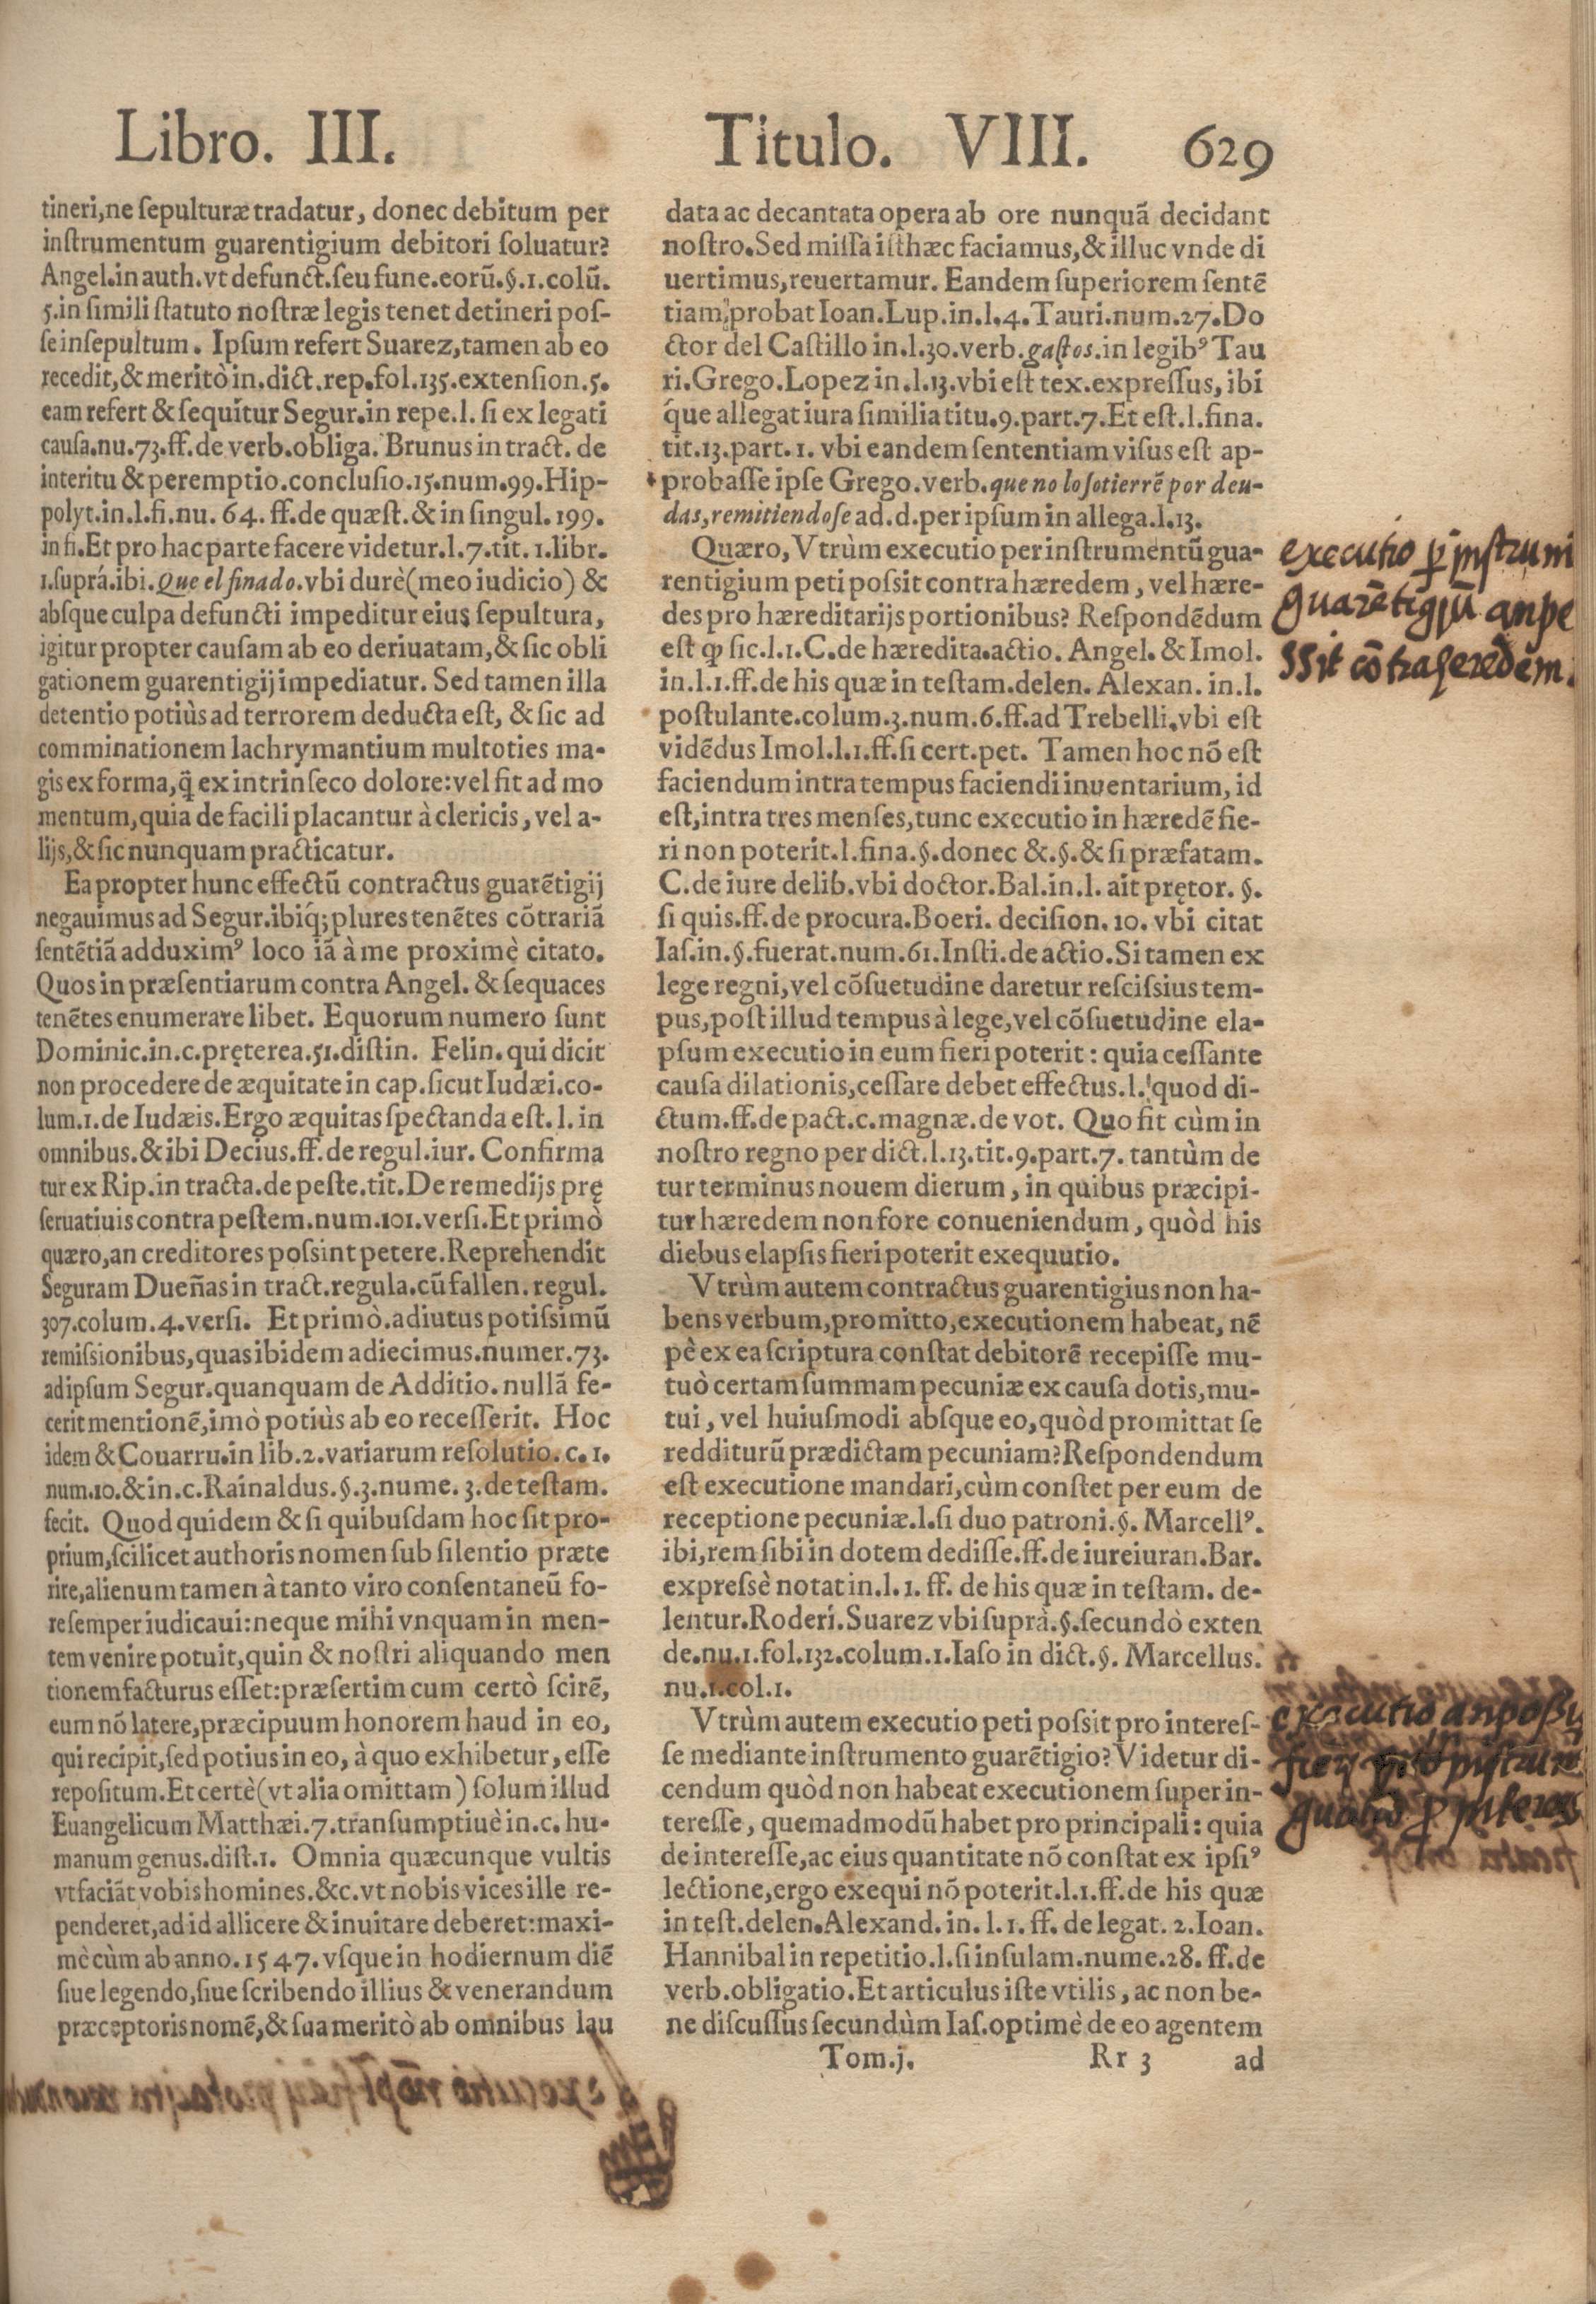 Libro. III. Titulo. VIII. 629
tineri,ne ſepulturæ tradatur, donec debitum per
inſtrumentum guarentigium debitori ſoluatur?
Angel.in auth.vt defunct.ſeu fune.eorũ.§.1.colũ.
5.in ſimili ſtatuto noſtræ legis tenet detineri poſ-
ſe inſepultum. Ipſum refert Suarez,tamen ab eo
recedit,& meritò in.dict.rep.fol.135.extenſion.5.
eam refert & ſequitur Segur.in repe.l. ſi ex legati
cauſa.nu.73.ff.de verb.obliga. Brunus in tract. de
interitu & peremptio.concluſio.15.num.99.Hip-
polyt.in.l.fi.nu. 64. ff.de quæſt.& in ſingul. 199.
in fi.Et pro hac parte facere videtur.l.7.tit. 1.libr.
1.ſuprá.ibi.Que el finado.vbi durè(meo iudicio) &
abſque culpa defuncti impeditur eius ſepultura,
igitur propter cauſam ab eo deriuatam,& ſic obli
gationem guarentigij impediatur. Sed tamen illa
detentio potiùs ad terrorem deducta eſt, & ſic ad
comminationem lachrymantium multoties ma-
gis ex forma,q̃ ex intrinſeco dolore:vel fit ad mo
mentum,quia de facili placantur à clericis, vel a-
lijs,& ſic nunquam practicatur.
Ea propter hunc effectũ contractus guarẽtigij
negauimus ad Segur.ibiq́;plures tenẽtes cõtrariã
ſentẽtiã adduximꝰ loco iã à me proximè citato.
Quos in præſentiarum contra Angel. & ſequaces
tenẽtes enumerare libet. E quorum numero ſunt
Dominic.in.c.pręterea.51.diſtin. Felin.qui dicit
non procedere de æquitate in cap.ſicut Iudæi.co-
lum.1.de Iudæis.Ergo æquitas ſpectanda eſt. l. in
omnibus.& ibi Decius.ff.de regul.iur. Confirma
tur ex Rip.in tracta.de peſte.tit.De remedijs prę
ſeruatiuis contra peſtem.num.101.verſi.Et primò
quæro,an creditores poſsint petere.Reprehendit
Seguram Dueñas in tract.regula.cũ fallen. regul.
307.colum.4.verſi. Et primò.adiutus potiſsimũ
remiſsionibus,quas ibidem adiecimus.numer.73.
ad ipſum Segur.quanquam de Additio.nullã fe-
cerit mentionẽ,imò potiùs ab eo receſſerit. Hoc
idem & Couarru.in lib.2.variarum reſolutio. c. 1.
num.10.& in.c.Rainaldus. §.3.nume. 3. de teſtam.
fecit. Quod quidem & ſi quibuſdam hoc ſit pro-
prium,ſcilicet authoris nomen ſub ſilentio præte
rire,alienum tamen à tanto viro conſentaneũ fo-
re ſemper iudicaui:neque mihi vnquam in men-
tem venire potuit,quin & noſtri aliquando men
tionem facturus eſſet:præſertim cum certò ſcirẽ,
eum nõ latere,præcipuum honorem haud in eo,
qui recipit,ſed potius in eo, à quo exhibetur, eſſe
repoſitum.Et certè(vt alia omittam) ſolum illud
Euangelicum Matthæi.7.tranſumptiuè in.c. hu-
manum genus.diſt.1. Omnia quæcunque vultis
vt faciãt vobis homines.&c.vt nobis vices ille re-
penderet,ad id allicere & inuitare deberet:maxi-
mè cùm ab anno. 1547. vſque in hodiernum diẽ
ſiue legendo,ſiue ſcribendo illius & venerandum
præceptoris nomẽ,& ſua meritò ab omnibus lau
data ac decantata opera ab ore nunquã decidant
noſtro.Sed miſſa iſthæc faciamus,& illuc vnde di
uertimus,reuertamur. Eandem ſuperiorem ſentẽ
tiam probat Ioan.Lup.in.l.4.Tauri.num.27.Do
ctor del Caſtillo in.l.30.verb.gaſtos.in legibꝰ Tau
ri.Grego.Lopez in.l.13.vbi eſt tex.expreſſus, ibi
q́ue allegat iura ſimilia titu.9.part.7.Et eſt.l.fina.
tit.13.part. 1. vbi eandem ſententiam viſus eſt ap-
probaſſe ipſe Grego.verb.que no lo ſotierrẽ por deu-
das,remitiendoſe ad.d.per ipſum in allega.l.13.
Quæro, Vtrùm executio per inſtrumentũ gua-
rentigium peti poſsit contra hæredem, vel hære-
des pro hæreditarijs portionibus? Reſpondẽdum
eſt ꝙ ſic.l.1.C.de hæredita.actio. Angel. & Imol.
in.l.1.ff.de his quæ in teſtam.delen. Alexan. in.l.
poſtulante.colum.3.num.6.ff.ad Trebelli.vbi eſt
vidẽdus Imol.l.1.ff.ſi cert.pet. Tamen hoc nõ eſt
faciendum intra tempus faciendi inuentarium, id
eſt,intra tres menſes,tunc executio in hæredẽ fie-
ri non poterit.l.fina.§.donec &.§.& ſi præfatam.
C.de iure delib.vbi doctor.Bal.in.l. ait prętor. §.
ſi quis.ff.de procura.Boeri. deciſion.10. vbi citat
Iaſ.in.§.fuerat.num.61.Inſti.de actio.Si tamen ex
lege regni,vel cõſuetudine daretur reſciſsius tem-
pus,poſt illud tempus à lege,vel cõſuetudine ela-
pſum executio in eum fieri poterit: quia ceſſante
cauſa dilationis,ceſſare debet effectus.l. quod di-
ctum.ff.de pact.c.magnæ.de vot. Quo fit cùm in
noſtro regno per dict.l.13.tit.9.part.7. tantùm de
tur terminus nouem dierum, in quibus præcipi-
tur hæredem non fore conueniendum, quòd his
diebus elapſis fieri poterit exequutio.
Vtrùm autem contractus guarentigius non ha-
bens verbum,promitto,executionem habeat, nẽ
pè ex ea ſcriptura conſtat debitorẽ recepiſſe mu-
tuò certam ſummam pecuniæ ex cauſa dotis,mu-
tui, vel huiuſmodi abſque eo,quòd promittat ſe
redditurũ prædictam pecuniam?Reſpondendum
eſt executione mandari,cùm conſtet per eum de
receptione pecuniæ.l.ſi duo patroni.§. Marcellꝰ.
ibi,rem ſibi in dotem dediſſe.ff.de iureiuran.Bar.
expreſsè notat in.l. 1. ff. de his quæ in teſtam. de-
lentur.Roderi.Suarez vbi ſuprà.§.ſecundò exten
de.nu.1.fol.132.colum.1.Iaſo in dict.§. Marcellus.
nu.1.col.1.
Vtrùm autem executio peti poſsit pro intereſ-
ſe mediante inſtrumento guarẽtigio? Videtur di-
cendum quòd non habeat executionem ſuper in-
tereſſe, quemadmodũ habet pro principali: quia
de intereſſe,ac eius quantitate nõ conſtat ex ipſiꝰ
lectione,ergo exequi nõ poterit.l.1.ff.de his quæ
in teſt.delen.Alexand. in. l. 1. ff. de legat. 2. Ioan.
Hannibal in repetitio.l.ſi inſulam.nume.28. ff.de
verb.obligatio.Et articulus iſte vtilis, ac non be-
ne diſcuſſus ſecundùm Iaſ.optimè de eo agentem
Tom.j. Rr 3 ad
executio ꝑ inſtrum
guarẽtigiũ an po
ssit cõtra heredem.
executio an poßit